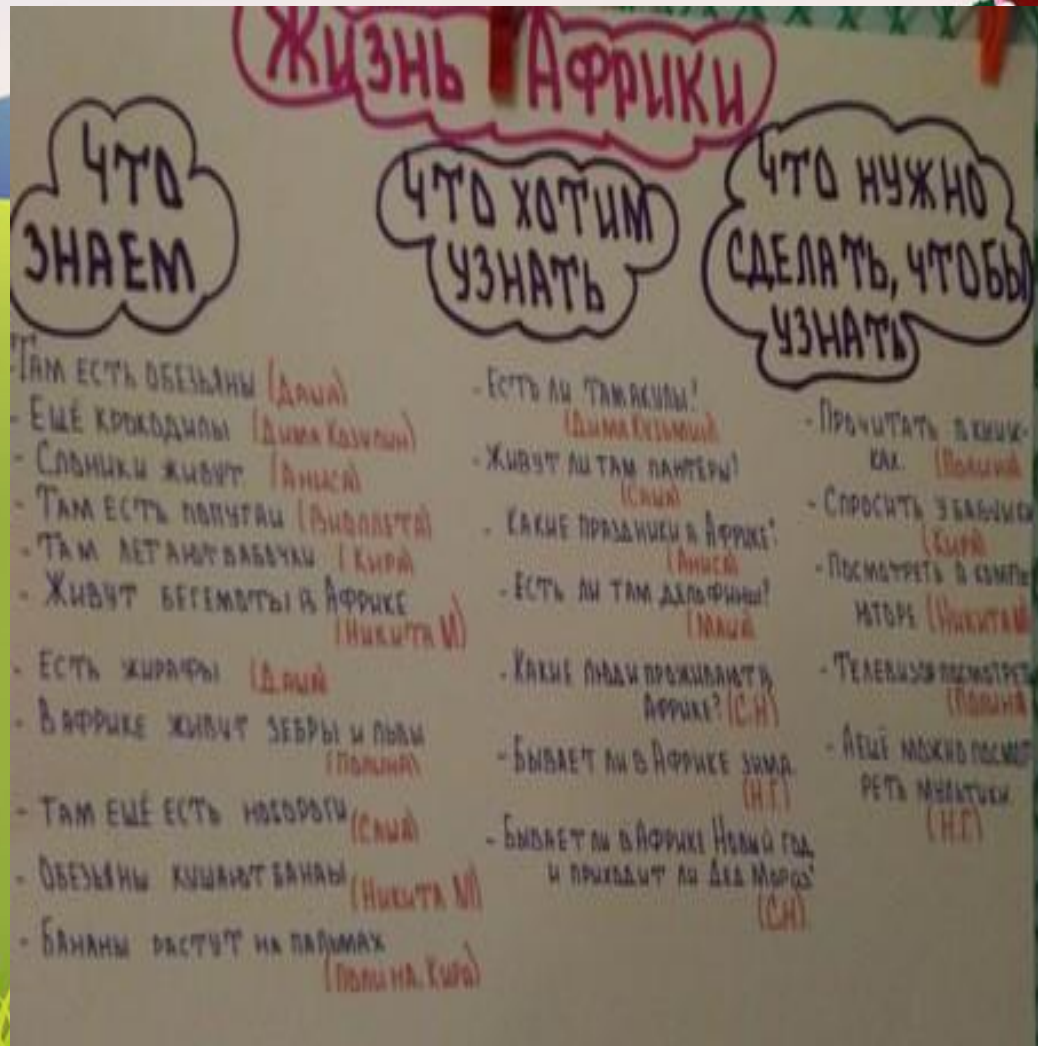 Жизнь Африки
ЧТО
ЗНАЕМ
-Там есть обезьяны (Даша)
- Ещё крокодилы (Дима Кузьмин)
- Слоники живут (Аниса)
- Там есть попугаи (Виолетта)
- Там летают бабочки (Кира)
- Живут бегемоты в Африке
(Никита М)
- Есть жирафы (Даша)
- В Африке живут зебры и львы
(Полина)
- Там ещё есть носороги (Саша)
- Обезьяны кушают банаы (Никита М)
- Бананы растут на пальмах
(Полина, Кира)
ЧТО ХОТИМ
УЗНАТЬ
- Есть ли там акулы?
(Дима Кузьмин)
- Живут ли там пантеры?
(Саша)
- Какие праздники в Африке?
(Аниса)
- Есть ли там дельфины?
(Маша)
- Какие люди проживают в
Африке? (С.Н)
- Бывает ли в Африке зима
(Н.Г)
- Бывает ли в Африке Новый год,
и приходит ли Дед Мороз?
(С.Н)
ЧТО НУЖНО
СДЕЛАТЬ, ЧТОБЫ
УЗНАТЬ
- Прочитать в книж-
ках. (Полина)
- Спросить у бабушки
(Кира)
- Посмотреть в компь-
юторе (Никита М)
- Телевизор посмотреть
(Полина)
- А ещё можно посмот
реть мультики.
(Н.Г)